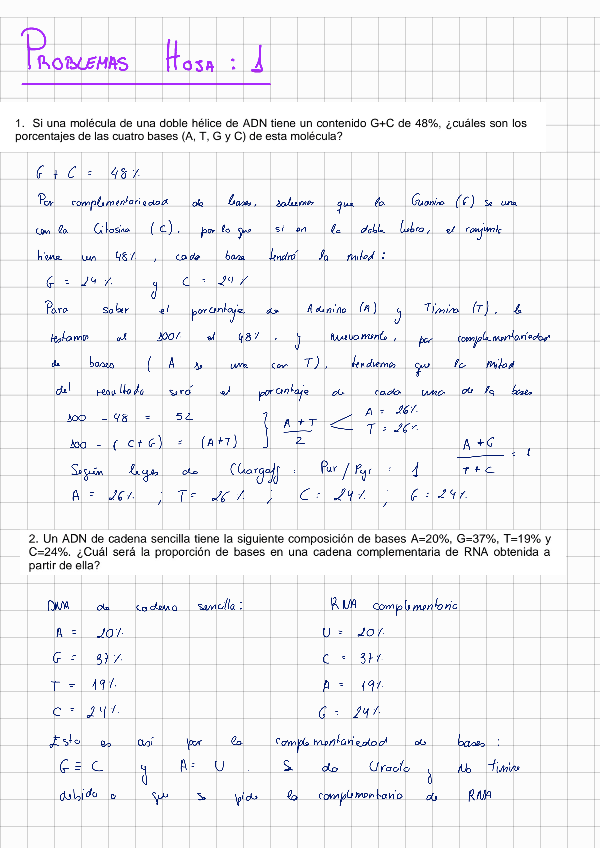 PROBLEMAS HOJA : 1
1. Si una molécula de una doble hélice de ADN tiene un contenido G+C de 48%, ¿cuáles son los
porcentajes de las cuatro bases (A, T, G y C) de esta molécula?
G + C = 48%
Por complementariedad de bases, sabemos que la Guanina (G) se une
con la Citosina (C), por lo que si en la doble hebra, el conjunto
tiene un 48%, cada base tendrá la mitad:
G = 24% y C = 24%
Para saber el porcentaje de Adenina (A) y Timina (T), le
restamos al 100% el 48%, y nuevamente, por complementariedad
de bases (A se une con T), tendremos que la mitad
del resultado será el porcentaje de cada una de la bases
100 - 48 = 52
100 - (C+G) = (A+T)
A + T
2
A = 26%
T = 26%
A + G
T + C
= 1
Según leyes de Chargaff: Pur/Pyr = 1
A = 26% ; T = 26% ; C = 24% ; G = 24%
2. Un ADN de cadena sencilla tiene la siguiente composición de bases A=20%, G=37%, T=19% y
C=24%. ¿Cuál será la proporción de bases en una cadena complementaria de RNA obtenida a
partir de ella?
DNA de cadena sencilla:
A = 20%
G = 37%
T = 19%
C = 24%
RNA complementaria
U = 20%
C = 37%
A = 19%
G = 24%
Esto es así por la complementariedad de bases:
G≡C y A=U. Se da Uracilo y No Timina
debido a que se pide la complementaria de RNA